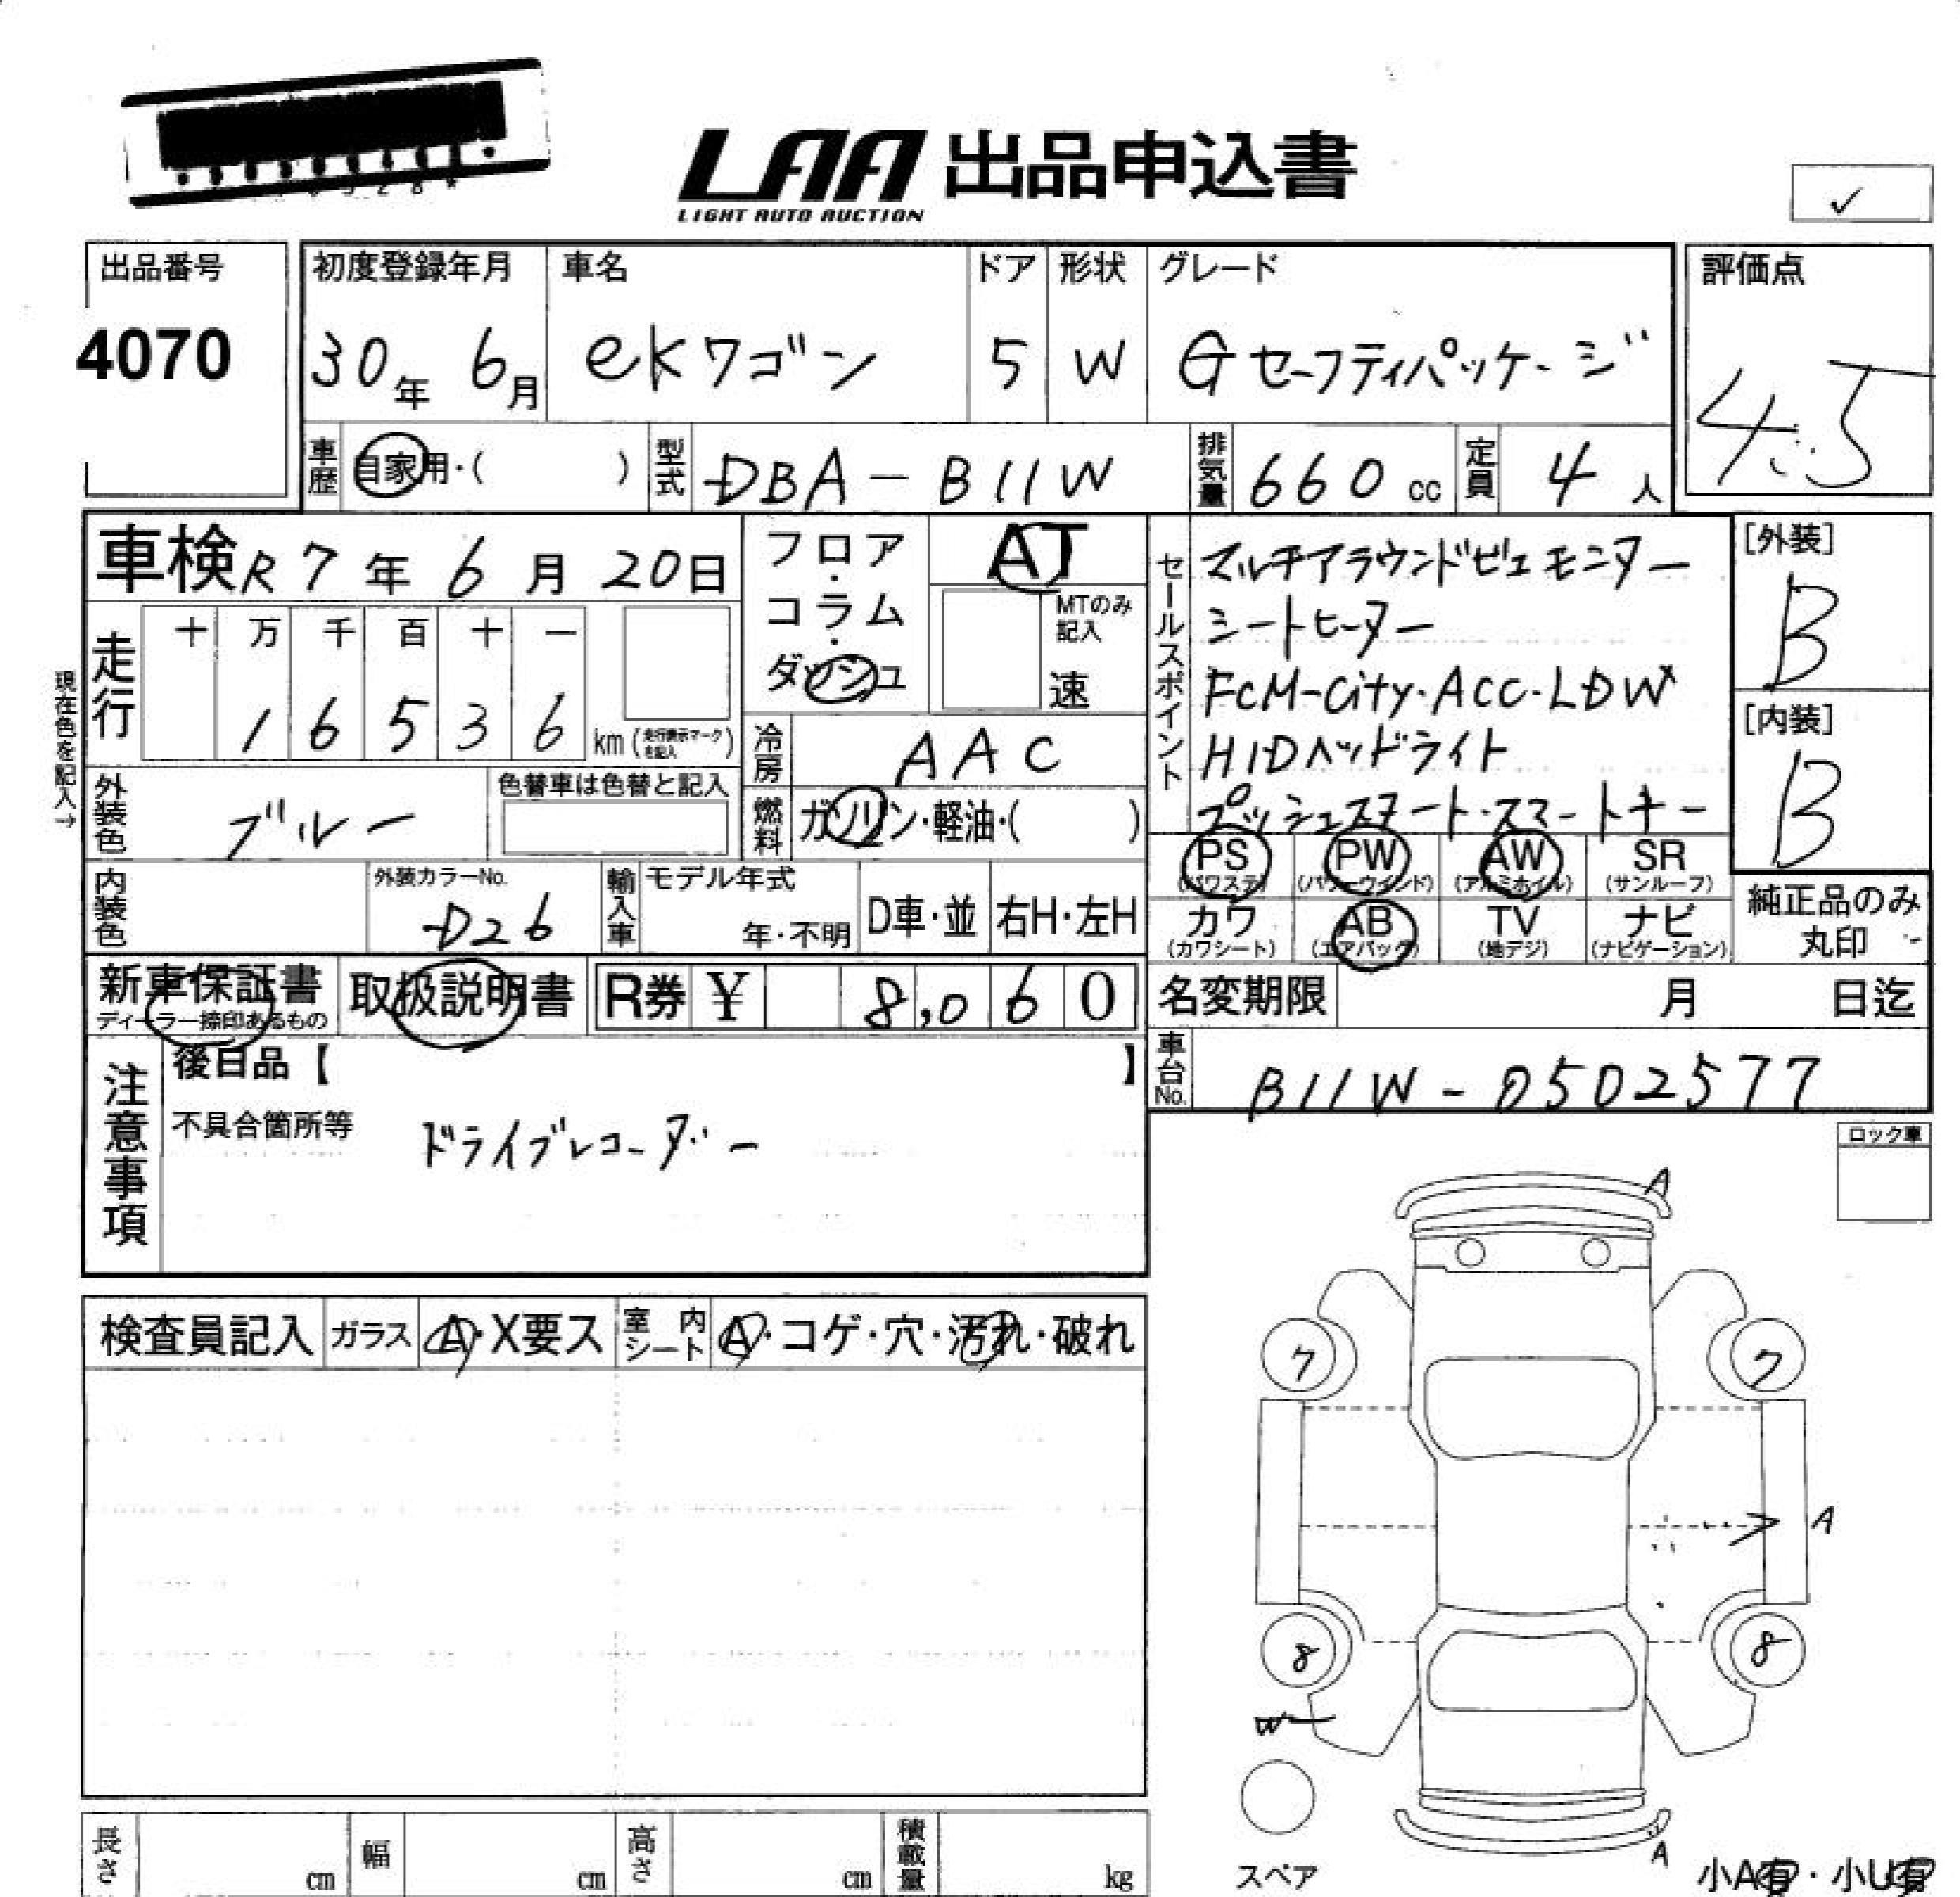 LAA 出品申込書
LIGHT AUTO AUCTION
✓
出品番号
4070
初度登録年月
30年 6月
車名
eKワゴン
ドア
5
形状
W
グレード
Gセーフティパッケージ
評価点
4.5
車歴
自家用・( )
型式
DBA-B11W
排気量
660 cc
定員
4 人
車検 R7年 6月 20日
走行
十 万 千 百 十 一
1 6 5 3 6 km (走行表示マークを記入)
現在色を記入→
外装色
ブルー
色替車は色替と記入
内装色
外装カラーNo.
D26
フロア・コラム・ダッシュ
AT
MTのみ記入
速
冷房
AAC
燃料
ガソリン・軽油・( )
輸入車
モデル年式
年・不明
D車・並
右H・左H
セールスポイント
マルチアラウンドビュモニター
シートヒーター
FCM-City・ACC・LDW
HIDヘッドライト
プッシュスタート・スマートキー
[外装]
B
[内装]
B
PS (パワステ)
PW (パワーウインド)
AW (アルミホイル)
SR (サンルーフ)
カワ (カワシート)
AB (エアバッグ)
TV (地デジ)
ナビ (ナビゲーション)
純正品のみ
丸印
新車保証書
ディーラー捺印あるもの
取扱説明書
R券 ¥ 8,060
名変期限 月 日迄
車台No.
B11W-0502577
注意事項
後日品【 】
不具合箇所等
ドライブレコーダー
ロック車
検査員記入
ガラス
A・X要ス
室内シート
A・コゲ・穴・汚れ・破れ
A
7
7
A
8
8
W
A
スペア
小A有・小U有
長さ cm
幅 cm
高さ cm
積載量 kg